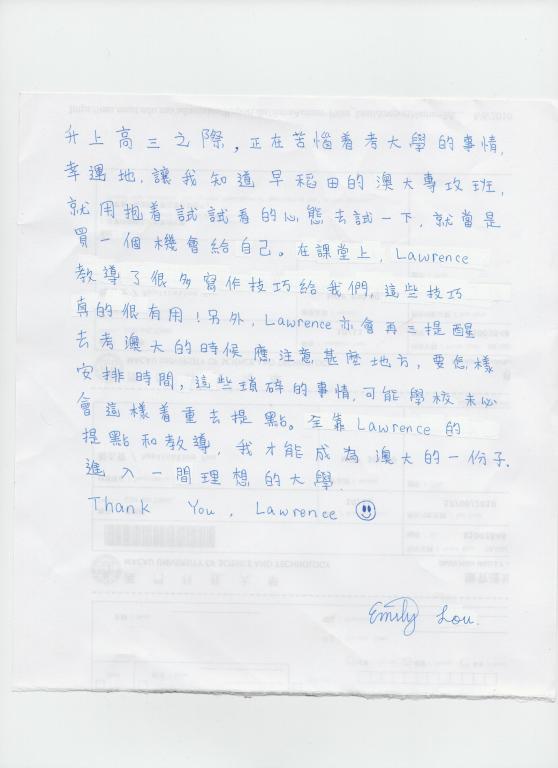 升上高三之際，正在苦惱着考大學的事情，
幸運地，讓我知道早稻田的澳大專攻班，
就用抱着試試看的心態去試一下，就當是
買一個機會給自己。在課堂上，Lawrence
教導了很多寫作技巧給我們，這些技巧
真的很有用！另外，Lawrence亦會再三提醒
去考澳大的時候應注意甚麼地方，要怎樣
安排時間，這些瑣碎的事情，可能學校未必
會這樣着重去提點。全靠Lawrence的
提點和教導，我才能成為澳大的一份子，
進入一間理想的大學.
Thank You, Lawrence
Emily Lou.
MACAU UNIVERSITY OF SCIENCE AND TECHNOLOGY
澳門科技大學